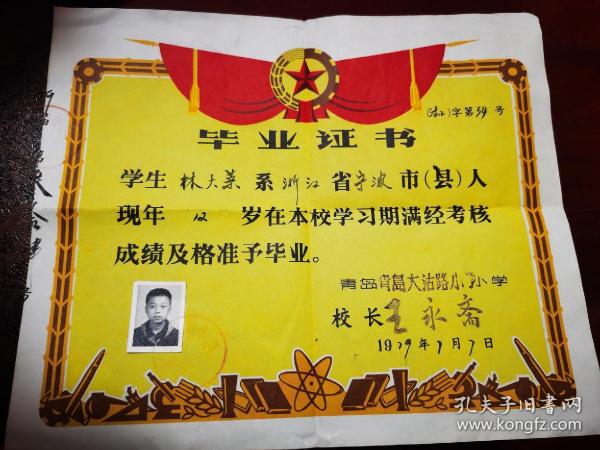 (沽小)字第59号
毕业证书
学生 林大荣 系 浙江 省 宁波 市(县)人
现年 12 岁在本校学习期满经考核
成绩及格准予毕业。
青岛 青岛大沽路小学 小学
校长 王永斋
1979年7月7日
孔夫子旧书网
www.kongfz.com